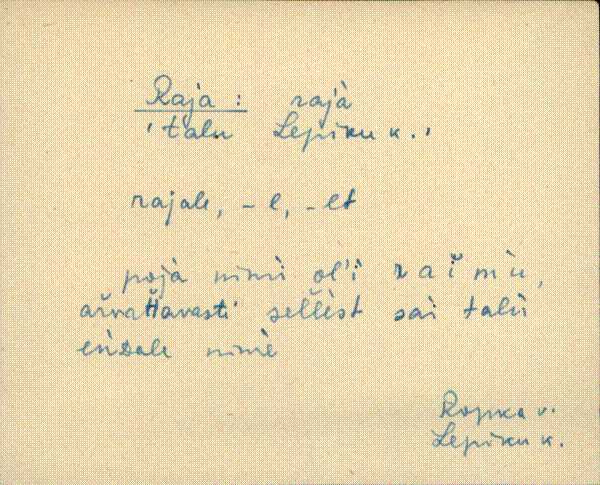 Raja : rajà
'talu Lepiku k.'
rajale, -e, -et
pojà nimì ol'ì raĭmù,
aŕvattavasti sellèst sai talù
eǹdale nimè
Ropka v.
Lepiku k.